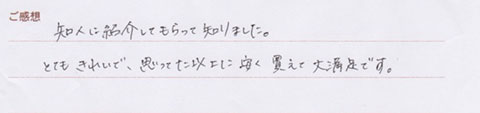 ご感想
知人に紹介してもらって知りました。
とてもきれいで、思ってた以上に安く買えて大満足です。